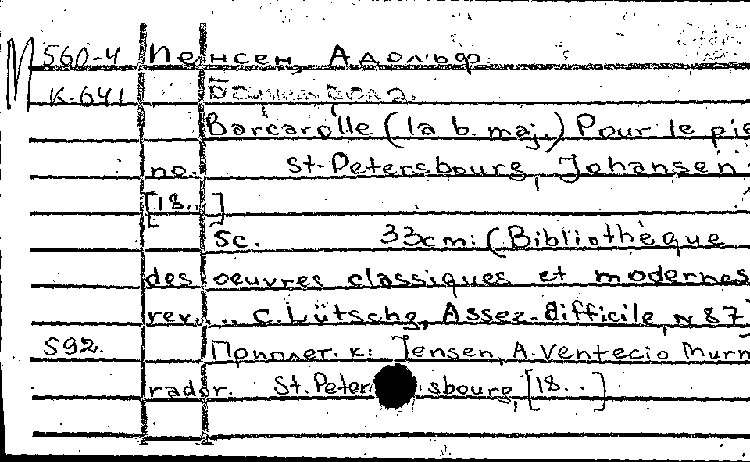 М 560-4 Иенсен, Адольф.
К-641
Barcarolle (la b. maj.) Pour le pia
no. St-Petersbourg, Johansen
[18..]
5c. 33cm: (Bibliothèque
des oeuvres classiques et modernes
rev. .. C. Lütschg, Assez difficile, N 87
592. Приплет. к: Jensen, A. Ventecio Murm
rador. St. Petersbourg, [18..]